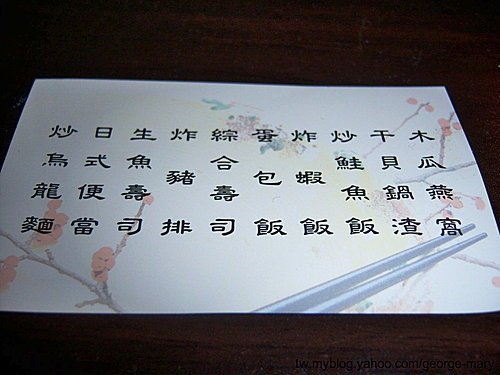 木瓜燕窩
干貝鍋渣
炒鮭魚飯
炸蝦飯
蛋包飯
綜合壽司
炸豬排
生魚壽司
日式便當
炒烏龍麵
tw.myblog.yahoo.com/george-mary